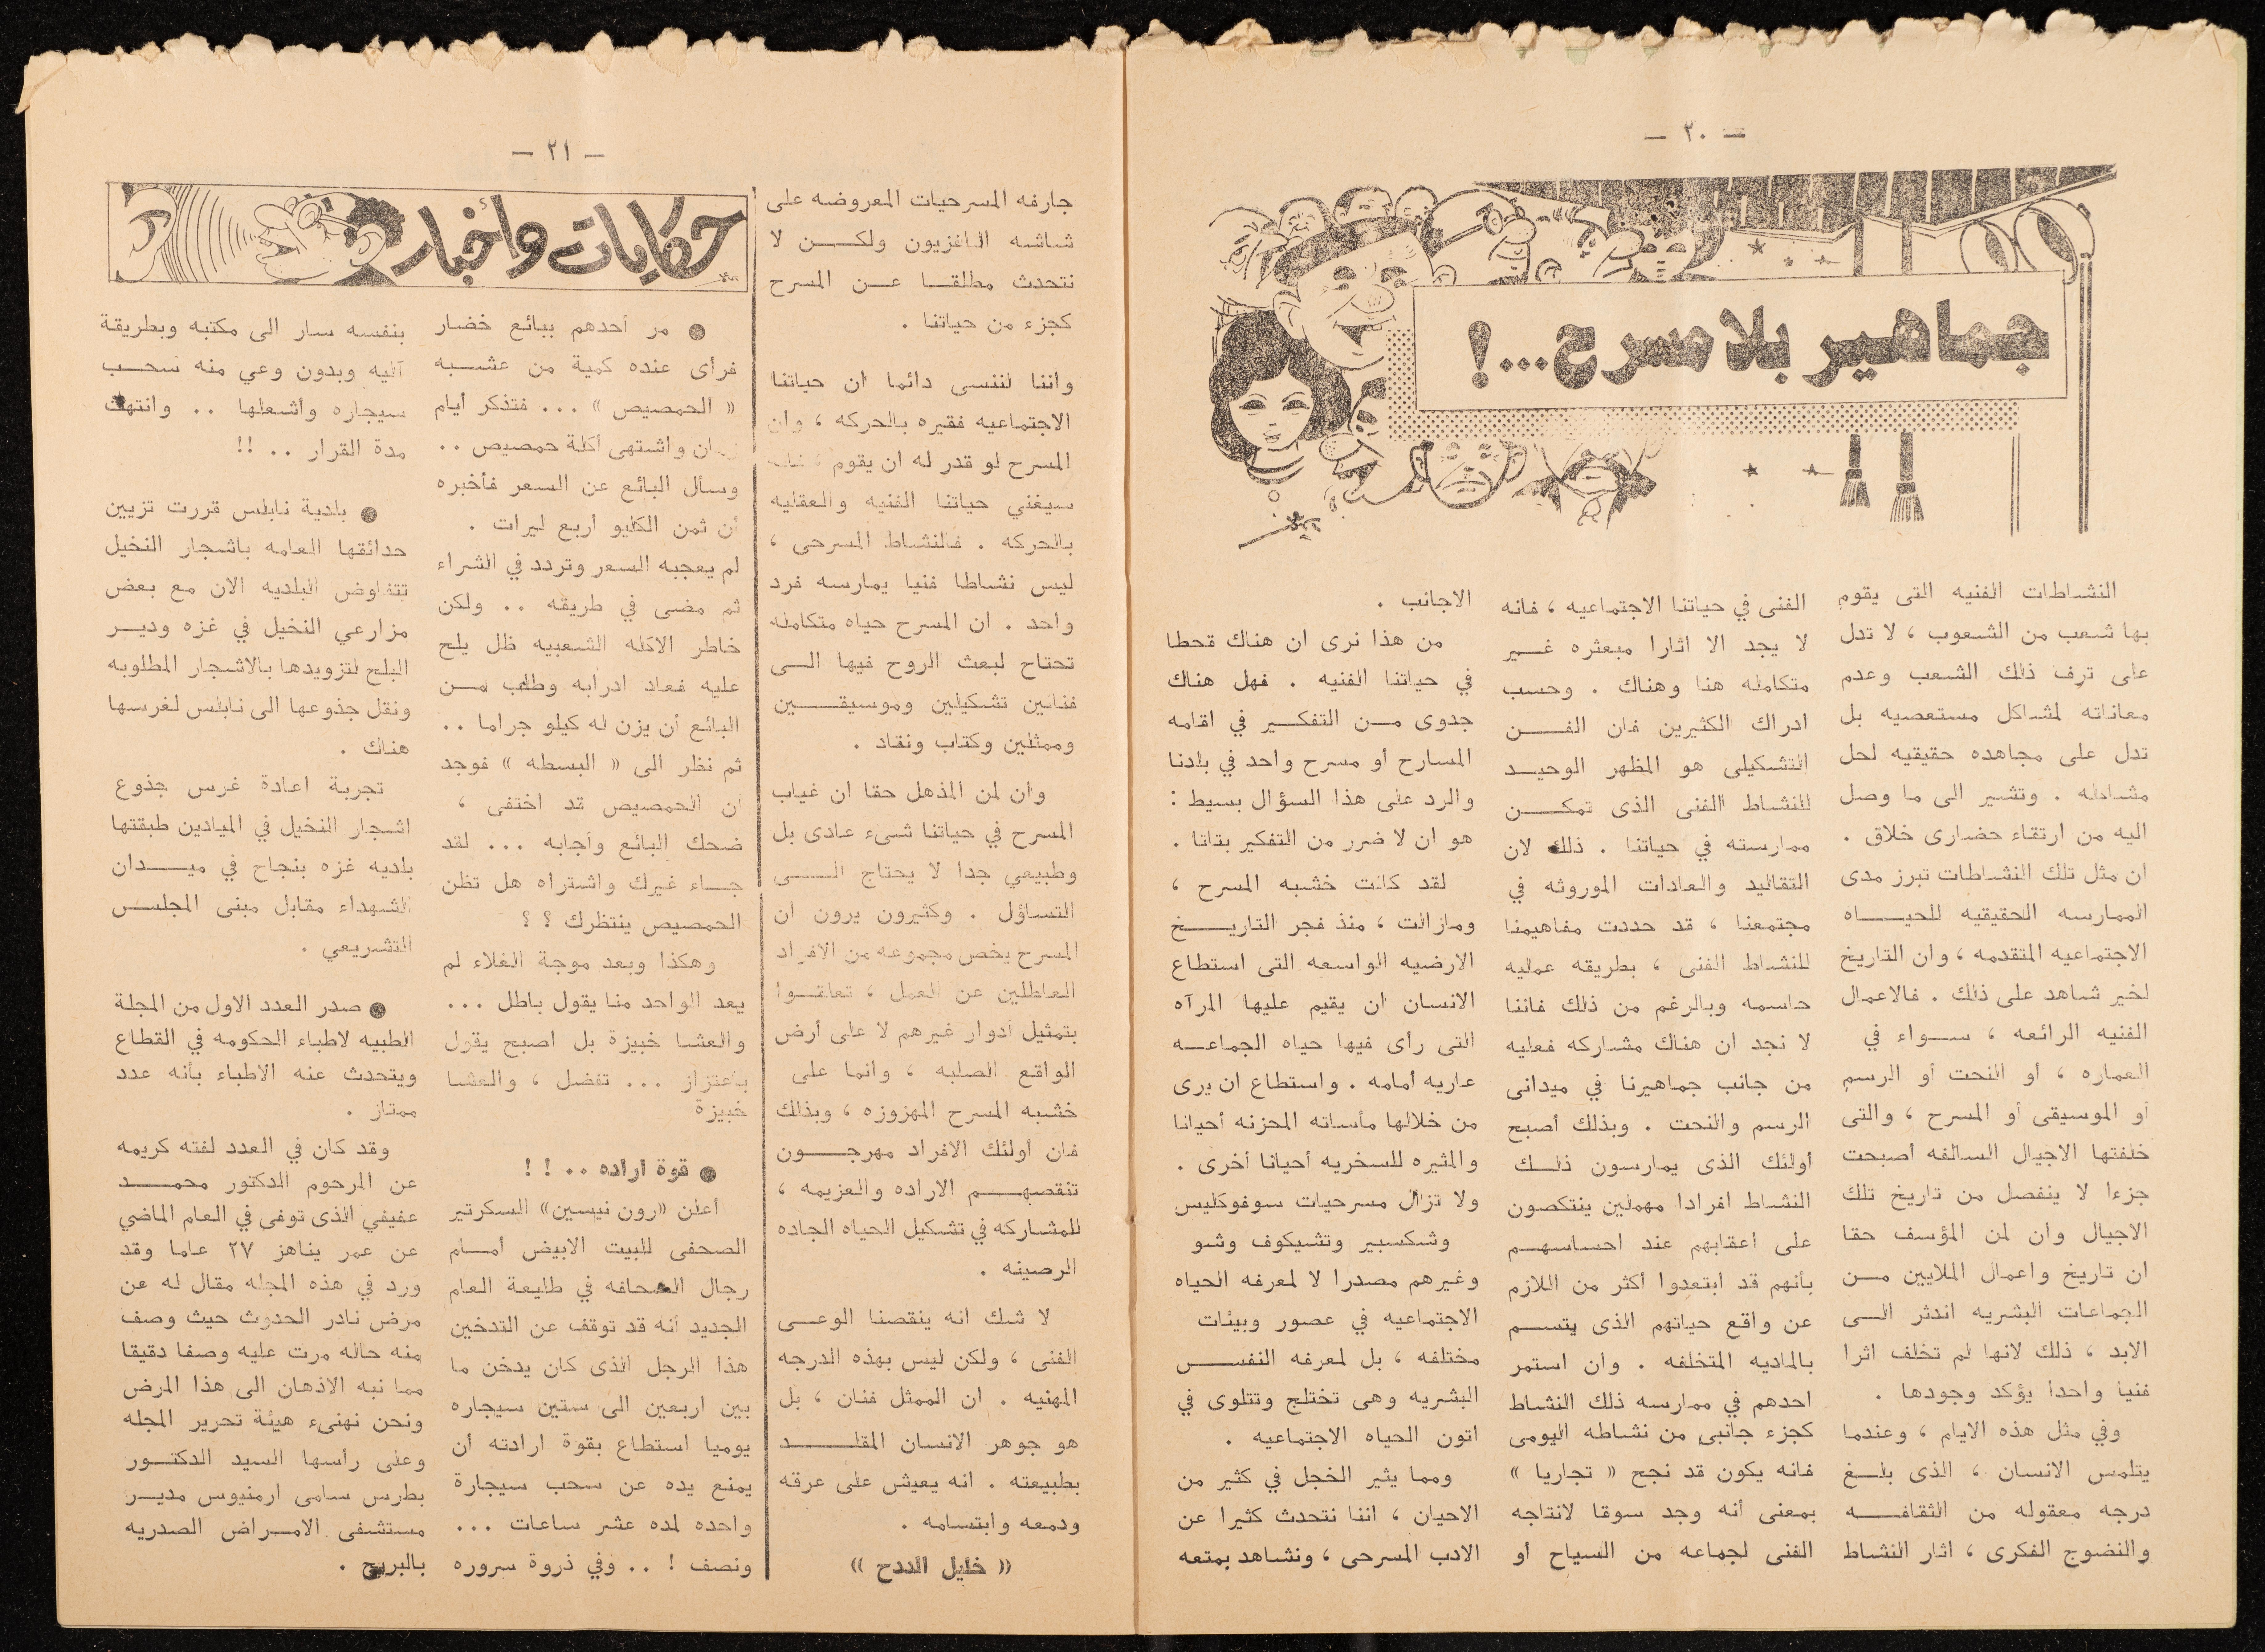 — ٢٠ —
جماهير بلا مسرح...!
النشاطات الفنيه التى يقوم
بها شعب من الشعوب ، لا تدل
على ترف ذلك الشعب وعدم
معاناته لمشاكل مستعصيه بل
تدل على مجاهده حقيقيه لحل
مشاكله . وتشير الى ما وصل
اليه من ارتقاء حضارى خلاق .
ان مثل تلك النشاطات تبرز مدى
الممارسه الحقيقيه للحيــــاه
الاجتماعيه المتقدمه ، وان التاريخ
لخير شاهد على ذلك . فالاعمال
الفنيه الرائعه ، ســواء في
العماره ، أو النحت أو الرسم
أو الموسيقى أو المسرح ، والتى
خلفتها الاجيال السالفه أصبحت
جزءا لا ينفصل من تاريخ تلك
الاجيال وان لمن المؤسف حقا
ان تاريخ واعمال الملايين مــن
الجماعات البشريه اندثر الــى
الابد ، ذلك لانها لم تخلف اثرا
فنيا واحدا يؤكد وجودها .
وفي مثل هذه الايام ، وعندما
يتلمس الانسان ، الذى بلــغ
درجه معقوله من الثقافـــه
والنضوج الفكرى ، اثار النشاط
الفنى في حياتنا الاجتماعيه ، فانه
لا يجد الا اثارا مبعثره غــير
متكامله هنا وهناك . وحسب
ادراك الكثيرين فان الفــــن
التشكيلى هو المظهر الوحيــد
للنشاط الفنى الذى تمكــــن
ممارسته في حياتنا . ذلك لان
التقاليد والعادات الموروثه في
مجتمعنا ، قد حددت مفاهيمنا
للنشاط الفنى ، بطريقه عمليه
حاسمه وبالرغم من ذلك فاننا
لا نجد ان هناك مشاركه فعليه
من جانب جماهيرنا في ميدانى
الرسم والنحت . وبذلك أصبح
أولئك الذى يمارسون ذلــك
النشاط افرادا مهملين ينتكصون
على اعقابهم عند احساسهــم
بأنهم قد ابتعدوا أكثر من اللازم
عن واقع حياتهم الذى يتســم
بالماديه المتخلفه . وان استمر
احدهم في ممارسه ذلك النشاط
كجزء جانبى من نشاطه اليومى
فانه يكون قد نجح « تجاريا »
بمعنى أنه وجد سوقا لانتاجه
الفنى لجماعه من السياح أو
الاجانب .
من هذا نرى ان هناك قحطا
في حياتنا الفنيه . فهل هناك
جدوى مــن التفكــير في اقامه
المسارح أو مسرح واحد في بلادنا
والرد على هذا السؤال بسيط :
هو ان لا ضرر من التفكير بتاتا .
لقد كانت خشبه المسرح ،
ومازالت ، منذ فجر التاريــــخ
الارضيه الواسعه التى استطاع
الانسان ان يقيم عليها المرآه
التى رأى فيها حياه الجماعــه
عاريه أمامه . واستطاع ان يرى
من خلالها مأساته المحزنه أحيانا
والمثيره للسخريه أحيانا أخرى .
ولا تزال مسرحيات سوفوكليس
وشكسبير وتشيكوف وشو
وغيرهم مصدرا لا لمعرفه الحياه
الاجتماعيه في عصور وبيئات
مختلفه ، بل لمعرفه النفــــس
البشريه وهى تختلج وتتلوى في
اتون الحياه الاجتماعيه .
ومما يثير الخجل في كثير من
الاحيان ، اننا نتحدث كثيرا عن
الادب المسرحى ، ونشاهد بمتعه
— ٢١ —
جارفه المسرحيات المعروضه على
شاشه التلفزيون ولكــــن لا
نتحدث مطلقــا عــن المسرح
كجزء من حياتنا .
واننا لننسى دائما ان حياتنا
الاجتماعيه فقيره بالحركه ، وان
المسرح لو قدر له ان يقوم ، فانه
سيغني حياتنا الفنيه والعقليه
بالحركه . فالنشاط المسرحى ،
ليس نشاطا فنيا يمارسه فرد
واحد . ان المسرح حياه متكامله
تحتاج لبعث الروح فيها الــى
فنانين تشكيلين وموسيقــــين
وممثلين وكتاب ونقاد .
وان لمن المذهل حقا ان غياب
المسرح في حياتنا شىء عادى بل
وطبيعي جدا لا يحتاج الــــى
التساؤل . وكثيرون يرون ان
المسرح يخص مجموعه من الافراد
العاطلين عن العمل ، تعلقــوا
بتمثيل أدوار غيرهم لا على أرض
الواقع الصلبه ، وانما على
خشبه المسرح المهزوزه ، وبذلك
فان أولئك الافراد مهرجــــون
تنقصهــم الاراده والعزيمه ،
للمشاركه في تشكيل الحياه الجاده
الرصينه .
لا شك انه ينقصنا الوعــى
الفنى ، ولكن ليس بهذه الدرجه
المهنيه . ان الممثل فنان ، بل
هو جوهر الانسان المقلــــد
بطبيعته . انه يعيش على عرقه
ودمعه وابتسامه .
« خليل الددح »
حكايات وأخبار
● مر أحدهم ببائع خضار
فرأى عنده كمية من عشــبه
« الحمصيص » ... فتذكر أيام
زمان واشتهى أكلة حمصيص ..
وسأل البائع عن السعر فأخبره
أن ثمن الكليو أربع ليرات .
لم يعجبه السعر وتردد في الشراء
ثم مضى في طريقه .. ولكن
خاطر الاكله الشعبيه ظل يلح
عليه فعاد ادرابه وطلب مــن
البائع أن يزن له كيلو جراما ..
ثم نظر الى « البسطه » فوجد
ان الحمصيص قد اختفى ،
ضحك البائع وأجابه ... لقد
جــاء غيرك واشتراه هل تظن
الحمصيص ينتظرك ؟ ؟
وهكذا وبعد موجة الغلاء لم
يعد الواحد منا يقول باطل ...
والعشا خبيزة بل اصبح يقول
باعتزاز ... تفضل ، والعشا
خبيزة
● قوة اراده .. ! !
أعلن «رون نيسين» السكرتير
الصحفى للبيت الابيض أمــام
رجال الصحافه في طليعة العام
الجديد أنه قد توقف عن التدخين
هذا الرجل الذى كان يدخن ما
بين اربعين الى ستين سيجاره
يوميا استطاع بقوة ارادته أن
يمنع يده عن سحب سيجارة
واحده لمده عشر ساعات ...
ونصف ! .. وفي ذروة سروره
بنفسه سار الى مكتبه وبطريقة
آليه وبدون وعي منه سحــب
سيجاره وأشعلها .. وانتهت
مدة القرار .. !!
● بلدية نابلس قررت تزيين
حدائقها العامه باشجار النخيل
تتفاوض البلديه الان مع بعض
مزارعي النخيل في غزه وديــر
البلح لتزويدها بالاشجار المطلوبه
ونقل جذوعها الى نابلس لغرسها
هناك .
تجربة اعادة غرس جذوع
اشجار النخيل في الميادين طبقتها
بلديه غزه بنجاح في ميــــدان
الشهداء مقابل مبنى المجلــس
التشريعي .
● صدر العدد الاول من المجلة
الطبيه لاطباء الحكومه في القطاع
ويتحدث عنه الاطباء بأنه عدد
ممتاز .
وقد كان في العدد لفته كريمه
عن المرحوم الدكتور محمــــد
عفيفي الذى توفى في العام الماضي
عن عمر يناهز ٢٧ عاما وقد
ورد في هذه المجله مقال له عن
مرض نادر الحدوث حيث وصف
منه حاله مرت عليه وصفا دقيقا
مما نبه الاذهان الى هذا المرض
ونحن نهنىء هيئة تحرير المجله
وعلى رأسها السيد الدكتــور
بطرس سامى ارمنيوس مديــر
مستشفى الامــراض الصدريه
بالبريج .